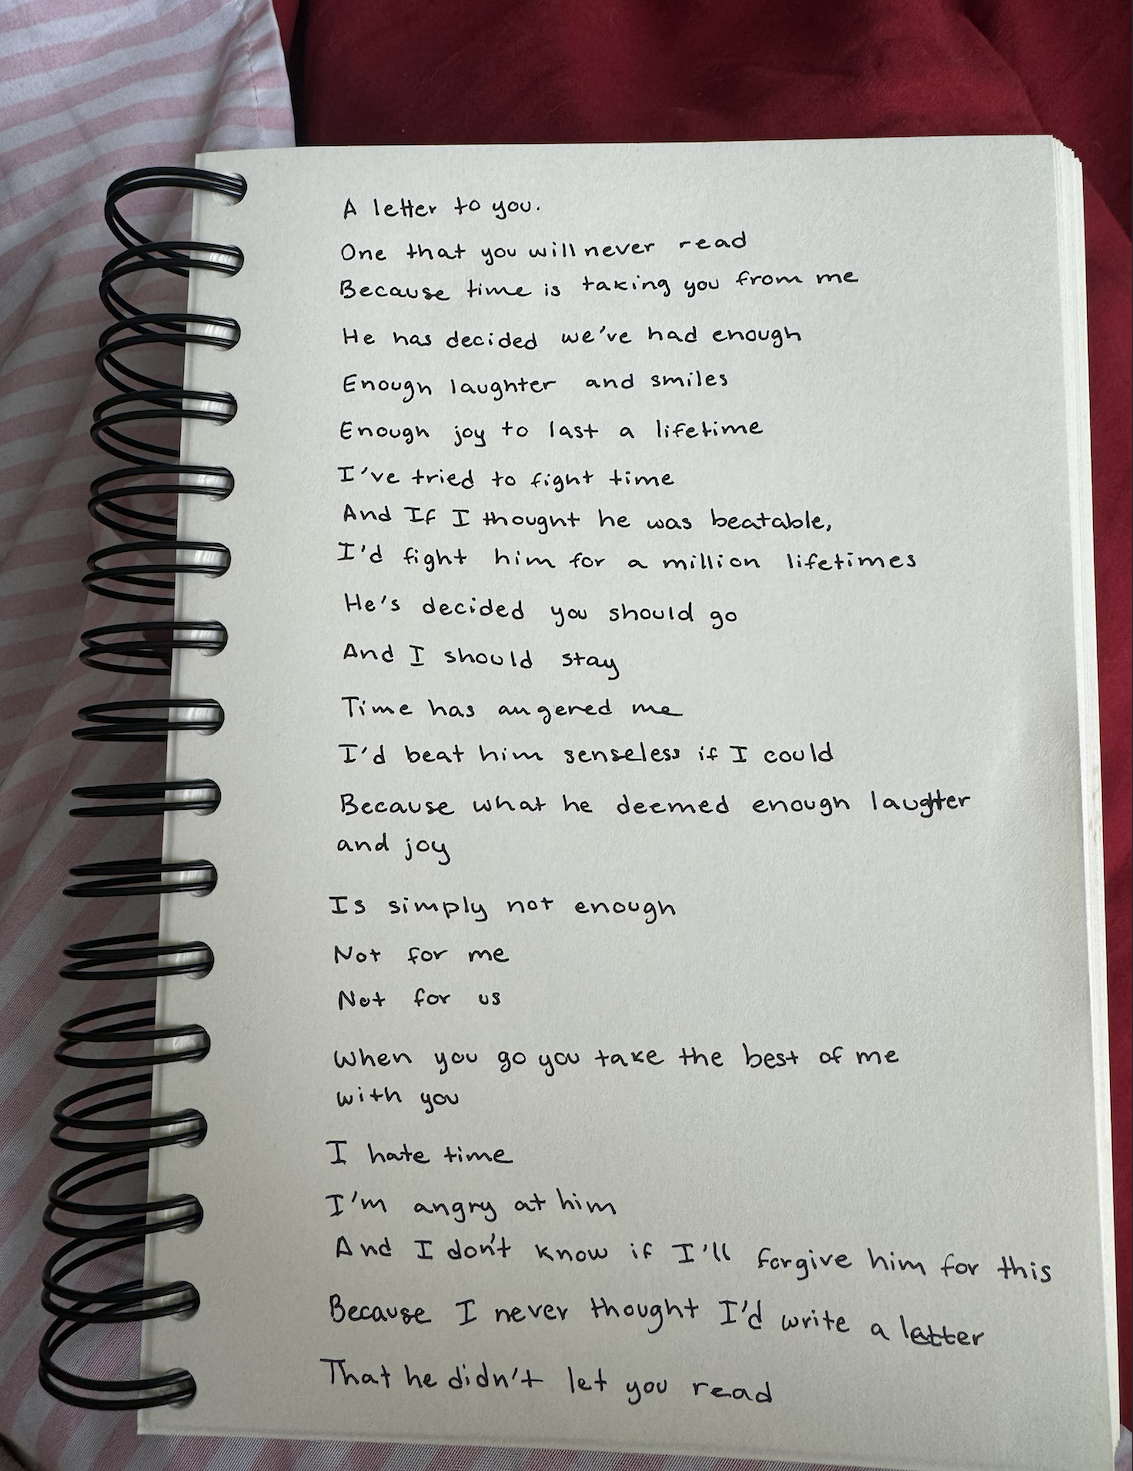 A letter to you.
One that you will never read
Because time is taking you from me
He has decided we've had enough
Enough laughter and smiles
Enough joy to last a lifetime
I've tried to fight time
And If I thought he was beatable,
I'd fight him for a million lifetimes
He's decided you should go
And I should stay
Time has angered me
I'd beat him senseless if I could
Because what he deemed enough laughter
and joy
Is simply not enough
Not for me
Not for us
When you go you take the best of me
with you
I hate time
I'm angry at him
And I don't know if I'll forgive him for this
Because I never thought I'd write a letter
That he didn't let you read